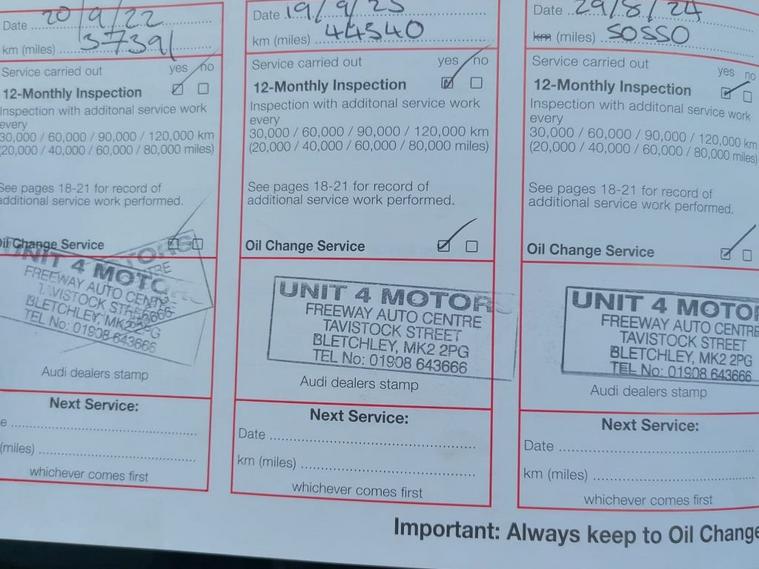 Date 20/9/22
km (miles) 37391
Service carried out yes no
12-Monthly Inspection
Inspection with additonal service work
every
30,000 / 60,000 / 90,000 / 120,000 km
(20,000 / 40,000 / 60,000 / 80,000 miles)
See pages 18-21 for record of
additional service work performed.
Oil Change Service
UNIT 4 MOTO
FREEWAY AUTO CENTRE
TAVISTOCK STREET
BLETCHLEY, MK2 2PG
TEL No: 01908 643666
Audi dealers stamp
Next Service:
e
(miles)
whichever comes first
Date 19/9/23
km (miles) 44340
Service carried out yes no
12-Monthly Inspection
Inspection with additonal service work
every
30,000 / 60,000 / 90,000 / 120,000 km
(20,000 / 40,000 / 60,000 / 80,000 miles)
See pages 18-21 for record of
additional service work performed.
Oil Change Service
UNIT 4 MOTORS
FREEWAY AUTO CENTRE
TAVISTOCK STREET
BLETCHLEY, MK2 2PG
TEL No: 01908 643666
Audi dealers stamp
Next Service:
Date
km (miles)
whichever comes first
Date 29/8/24
km (miles) 50550
Service carried out yes no
12-Monthly Inspection
Inspection with additonal service work
every
30,000 / 60,000 / 90,000 / 120,000 km
(20,000 / 40,000 / 60,000 / 80,000 miles)
See pages 18-21 for record of
additional service work performed.
Oil Change Service
UNIT 4 MOTO
FREEWAY AUTO CENTRE
TAVISTOCK STREET
BLETCHLEY, MK2 2PG
TEL No: 01908 643666
Audi dealers stamp
Next Service:
Date
km (miles)
whichever comes first
Important: Always keep to Oil Change